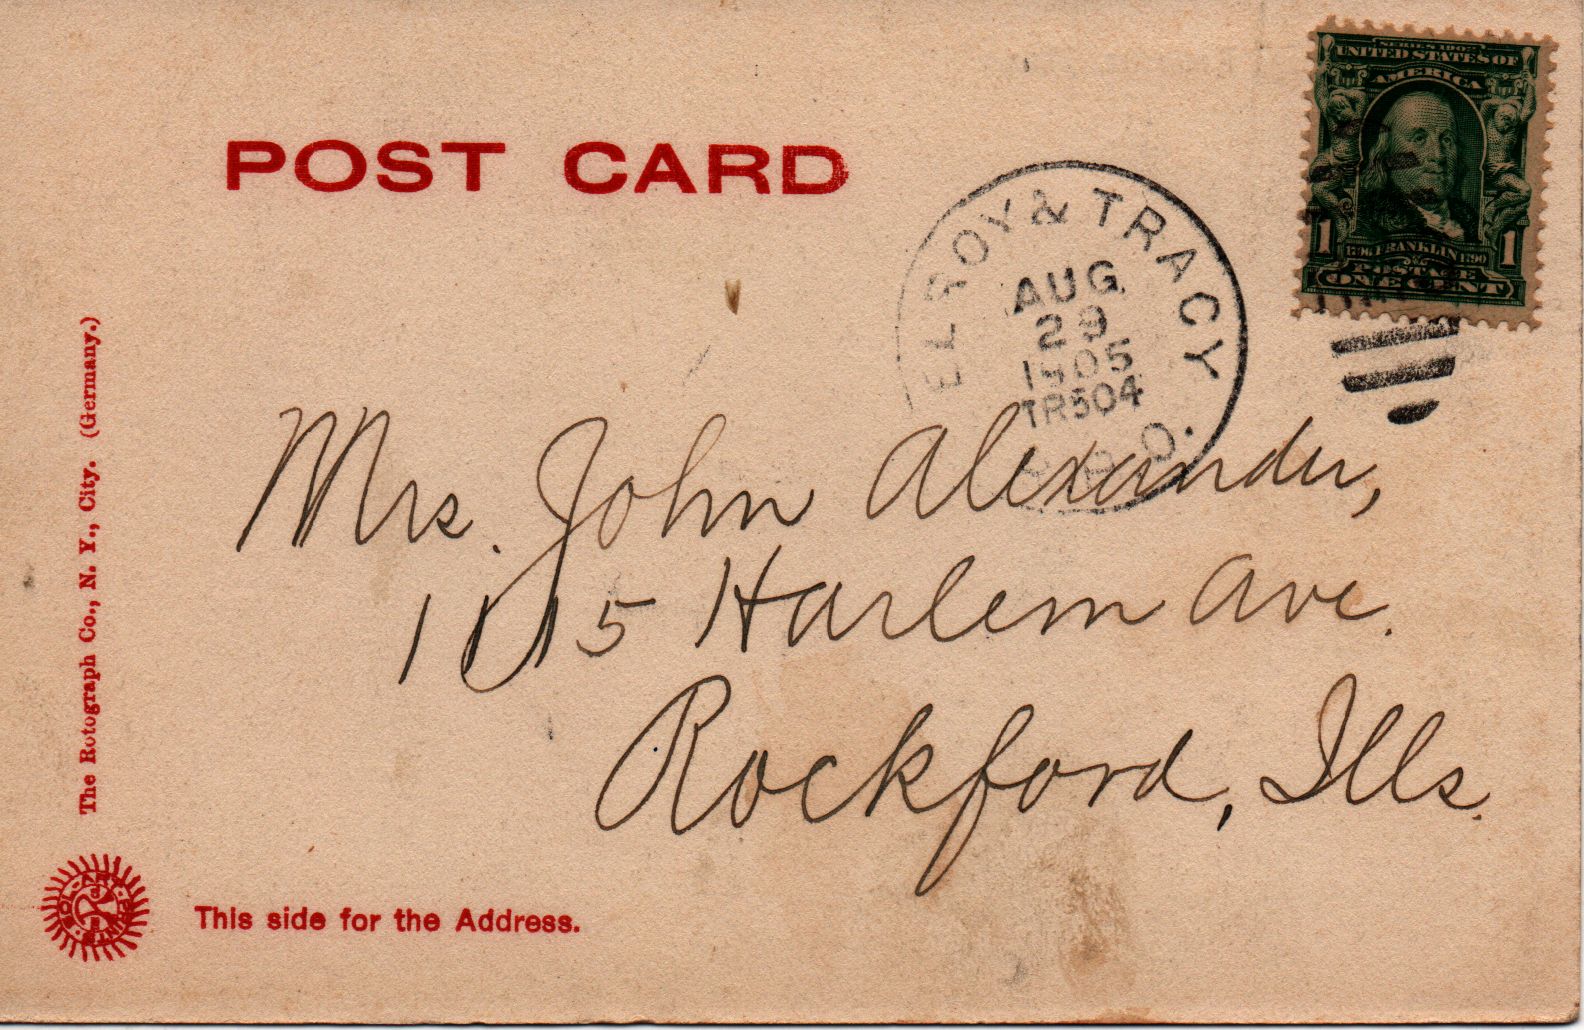 POST CARD
SERIES 1902
UNITED STATES OF
AMERICA
1 FRANKLIN 1790 1
POSTAGE
ONE CENT
ELROY & TRACY
AUG
29
1905
TR504
R.P.O.
Mrs. John Alexander,
1115 Harlem Ave.
Rockford, Ills.
The Rotograph Co., N. Y., City. (Germany.)
SOL-ART PRINTS
This side for the Address.